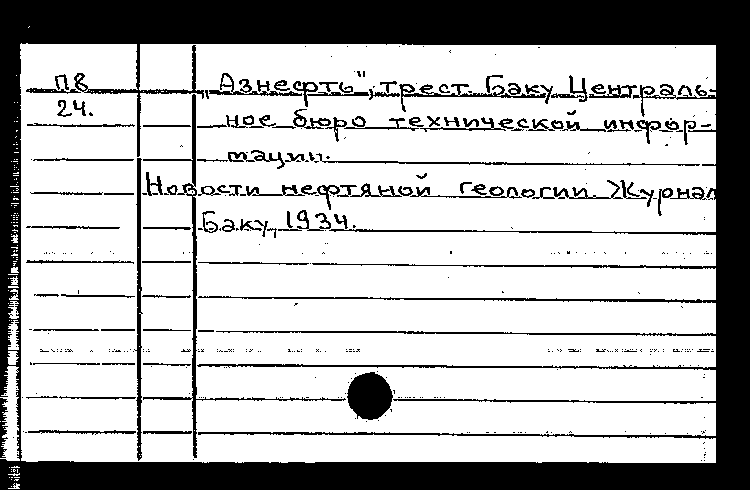 П8
24.
„Азнефть", трест. Баку Централь-
ное бюро технической инфор-
мации.
Новости нефтяной геологии. Журнал
Баку, 1934.